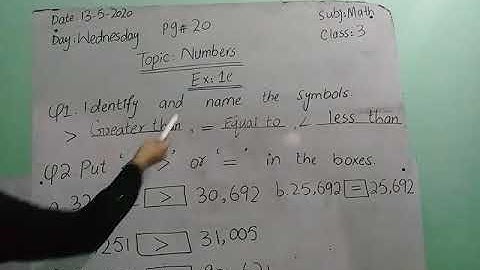 Date: 13-5-2020 Pg# 20 Subj: Math
Day: Wednesday Class: 3
Topic: Numbers
Ex: 1c
Q1. Identify and name the symbols.
> Greater than, = Equal to, < less than
Q2 Put ' > ' or ' = ' in the boxes.
> 30,692 b. 25,692 = 25,692
251 > 31,005